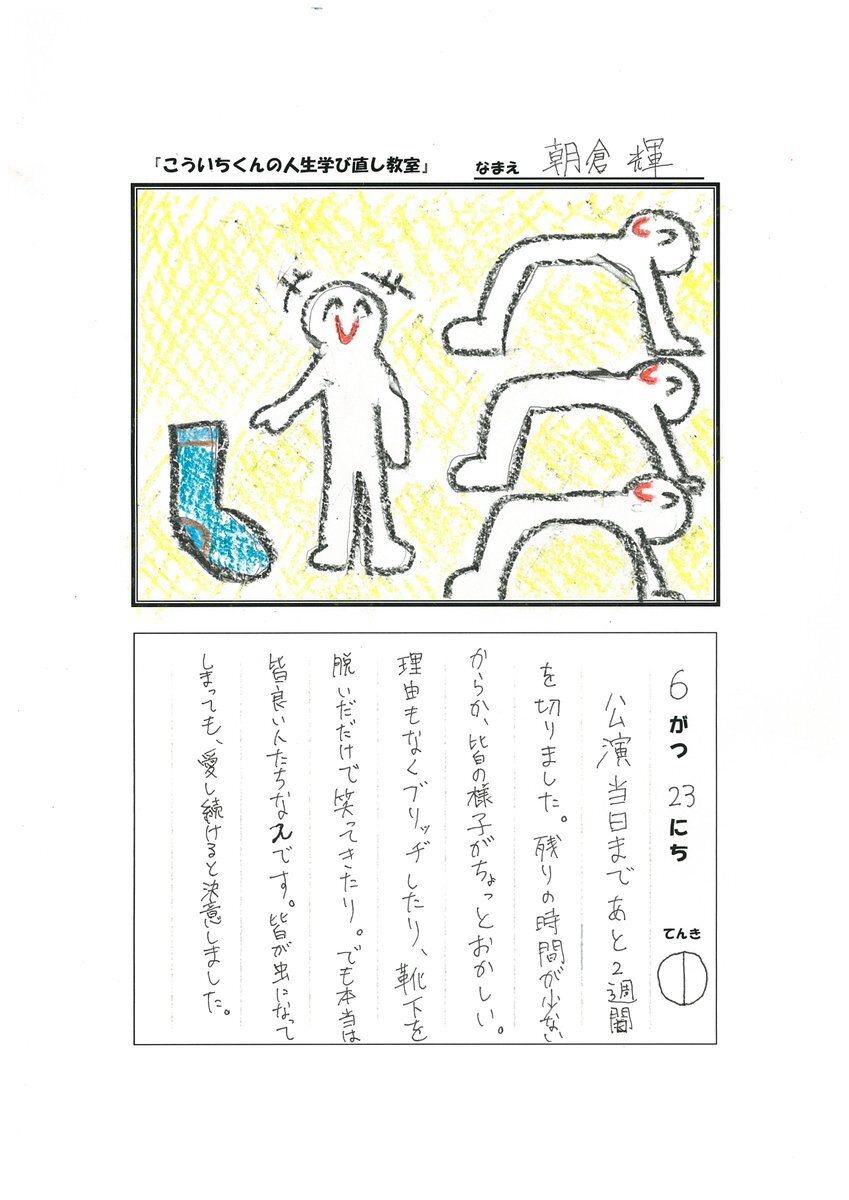 『こういちくんの人生学び直し教室』
なまえ 朝倉 輝
6がつ 23にち てんき
公演当日まであと2週間
を切りました。残りの時間が少ない
からか、皆の様子がちょっとおかしい。
理由もなくブリッヂしたり、靴下を
脱いだだけで笑ってきたり。でも本当は
皆良い人たちなんです。皆が虫になって
しまっても、愛し続けると決意しました。